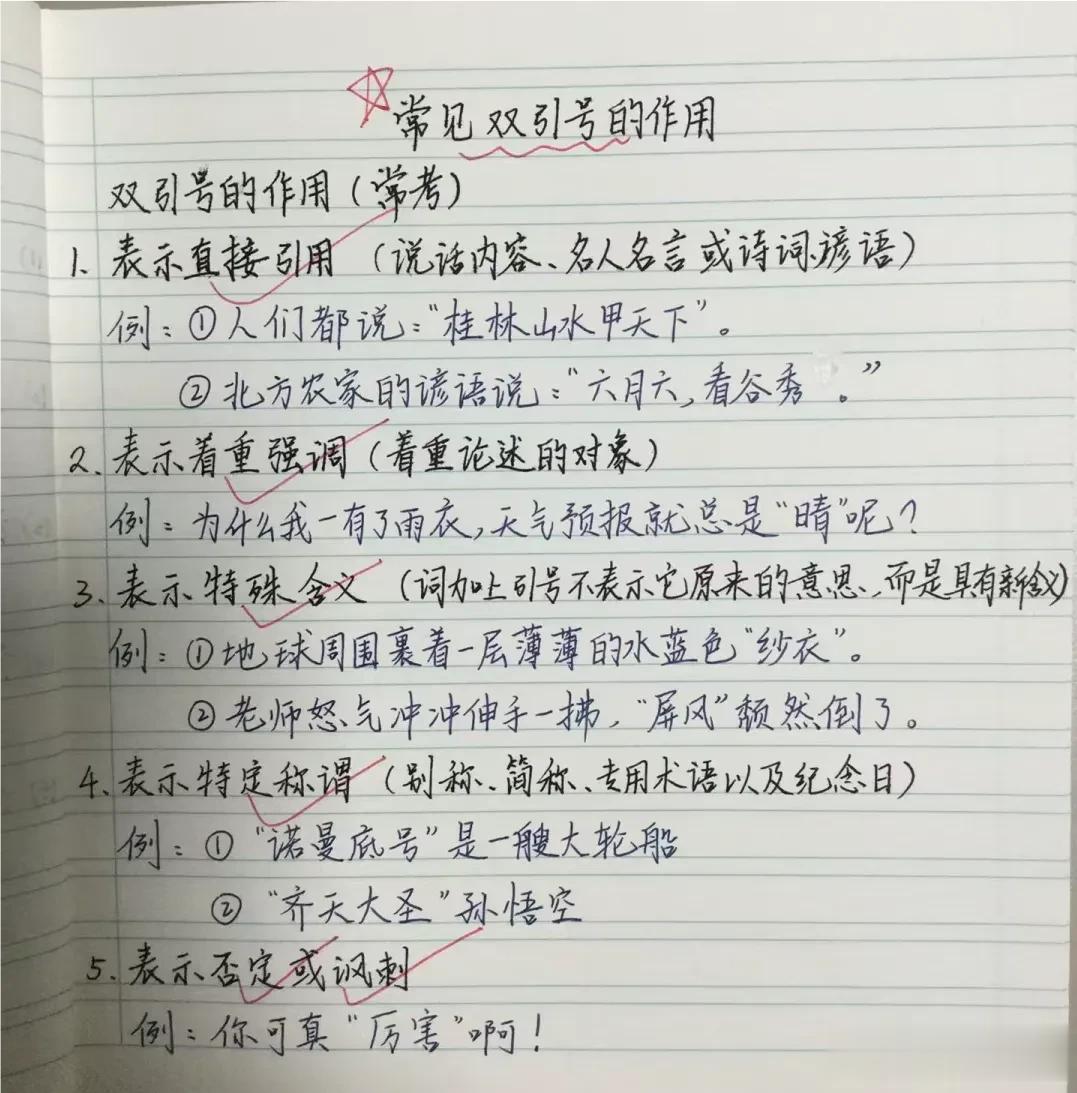 常见双引号的作用
双引号的作用（常考）
1、表示直接引用（说话内容、名人名言或诗词、谚语）
例：①人们都说：“桂林山水甲天下”。
②北方农家的谚语说：“六月六，看谷秀。”
2、表示着重强调（着重论述的对象）
例：为什么我一有了雨衣，天气预报就总是“晴”呢？
3、表示特殊含义（词加上引号不表示它原来的意思，而是具有新含义）
例：①地球周围裹着一层薄薄的水蓝色“纱衣”。
②老师怒气冲冲伸手一拂，“屏风”颓然倒了。
4、表示特定称谓（别称、简称、专用术语以及纪念日）
例：①“诺曼底号”是一艘大轮船
②“齐天大圣”孙悟空
5、表示否定或讽刺
例：你可真“厉害”啊！